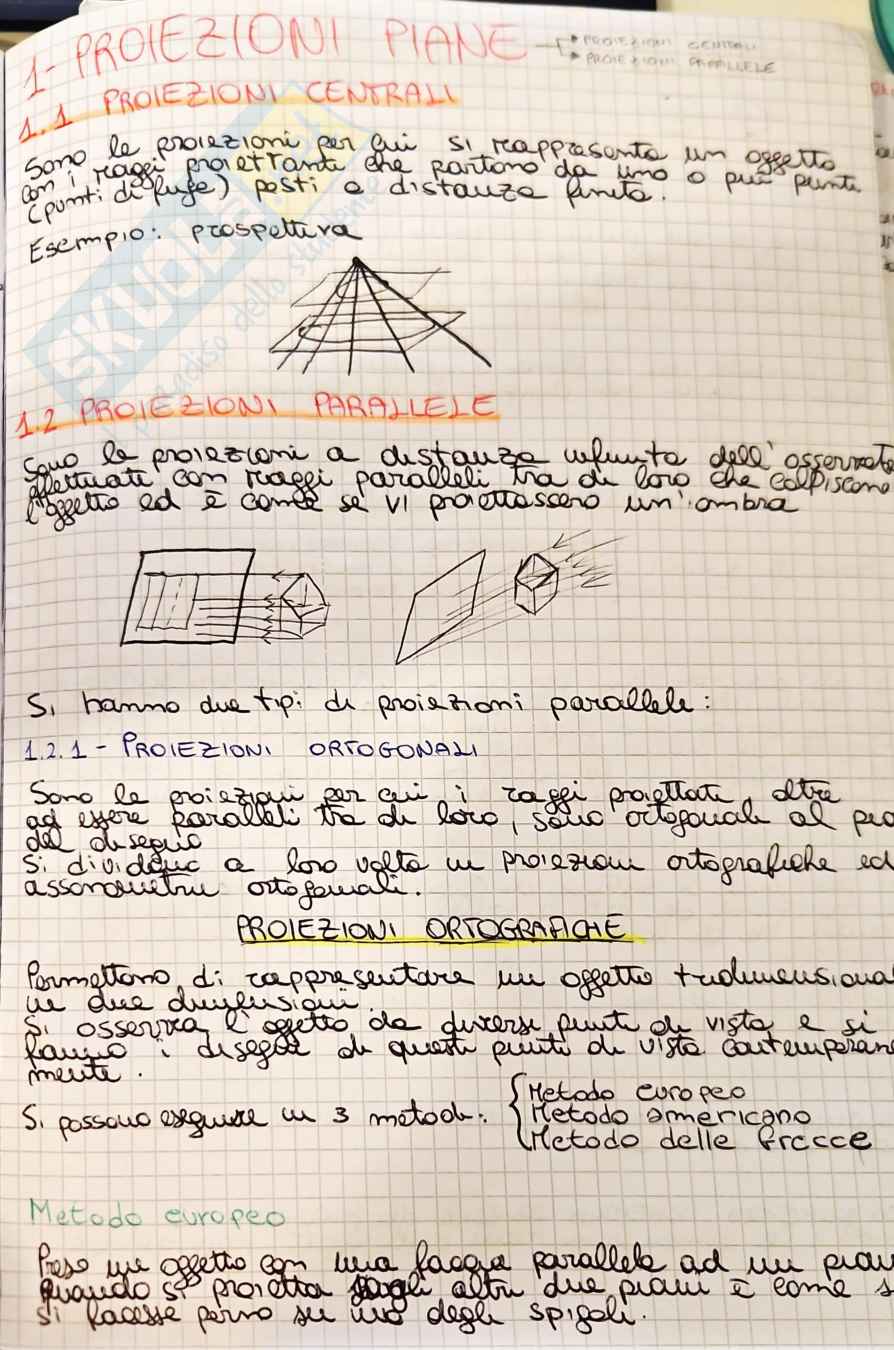 1- PROIEZIONI PIANE
PROIEZIONI CENTRALI
PROIEZIONI PARALLELE
1.1 PROIEZIONI CENTRALI
Sono le proiezioni per cui si rappresenta un oggetto
con i raggi proiettanti che partono da uno o più punti
(punti di fuga) posti a distanza finita.
Esempio: prospettiva
SKUOLA
paradiso dello studente
1.2 PROIEZIONI PARALLELE
Sono le proiezioni a distanza infinita dell'osservato
effettuati con raggi paralleli tra di loro che colpiscono
l'oggetto ed è come se vi proiettassero un'ombra
Si hanno due tipi di proiezioni parallele:
1.2.1- PROIEZIONI ORTOGONALI
Sono le proiezioni per cui i raggi proiettati, oltre
ad essere paralleli tra di loro, sono ortogonali al
del disegno
Si dividono a loro volta in proiezioni ortografiche ed
assonometrie ortogonali.
PROIEZIONI ORTOGRAFICHE
Permettono di rappresentare un oggetto tridimensional
in due dimensioni.
Si osserva l'oggetto da diversi punti di vista e si
fanno i disegni di questi punti di vista contemporan
mente.
Si possono eseguire in 3 metodi:
Metodo europeo
Metodo americano
Metodo delle frecce
Metodo europeo
Preso un oggetto con una faccia parallela ad un pian
quando si proietta sugli altri due piani è come s
si facesse perno su uno degli spigoli.